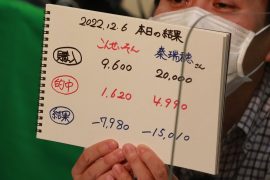 2022.12.6 本日の結果
こんせいそん 秦瑞穂さん
購入 9.600 20,000
的中 1.620 4.990
結果 -7,980 -15,010